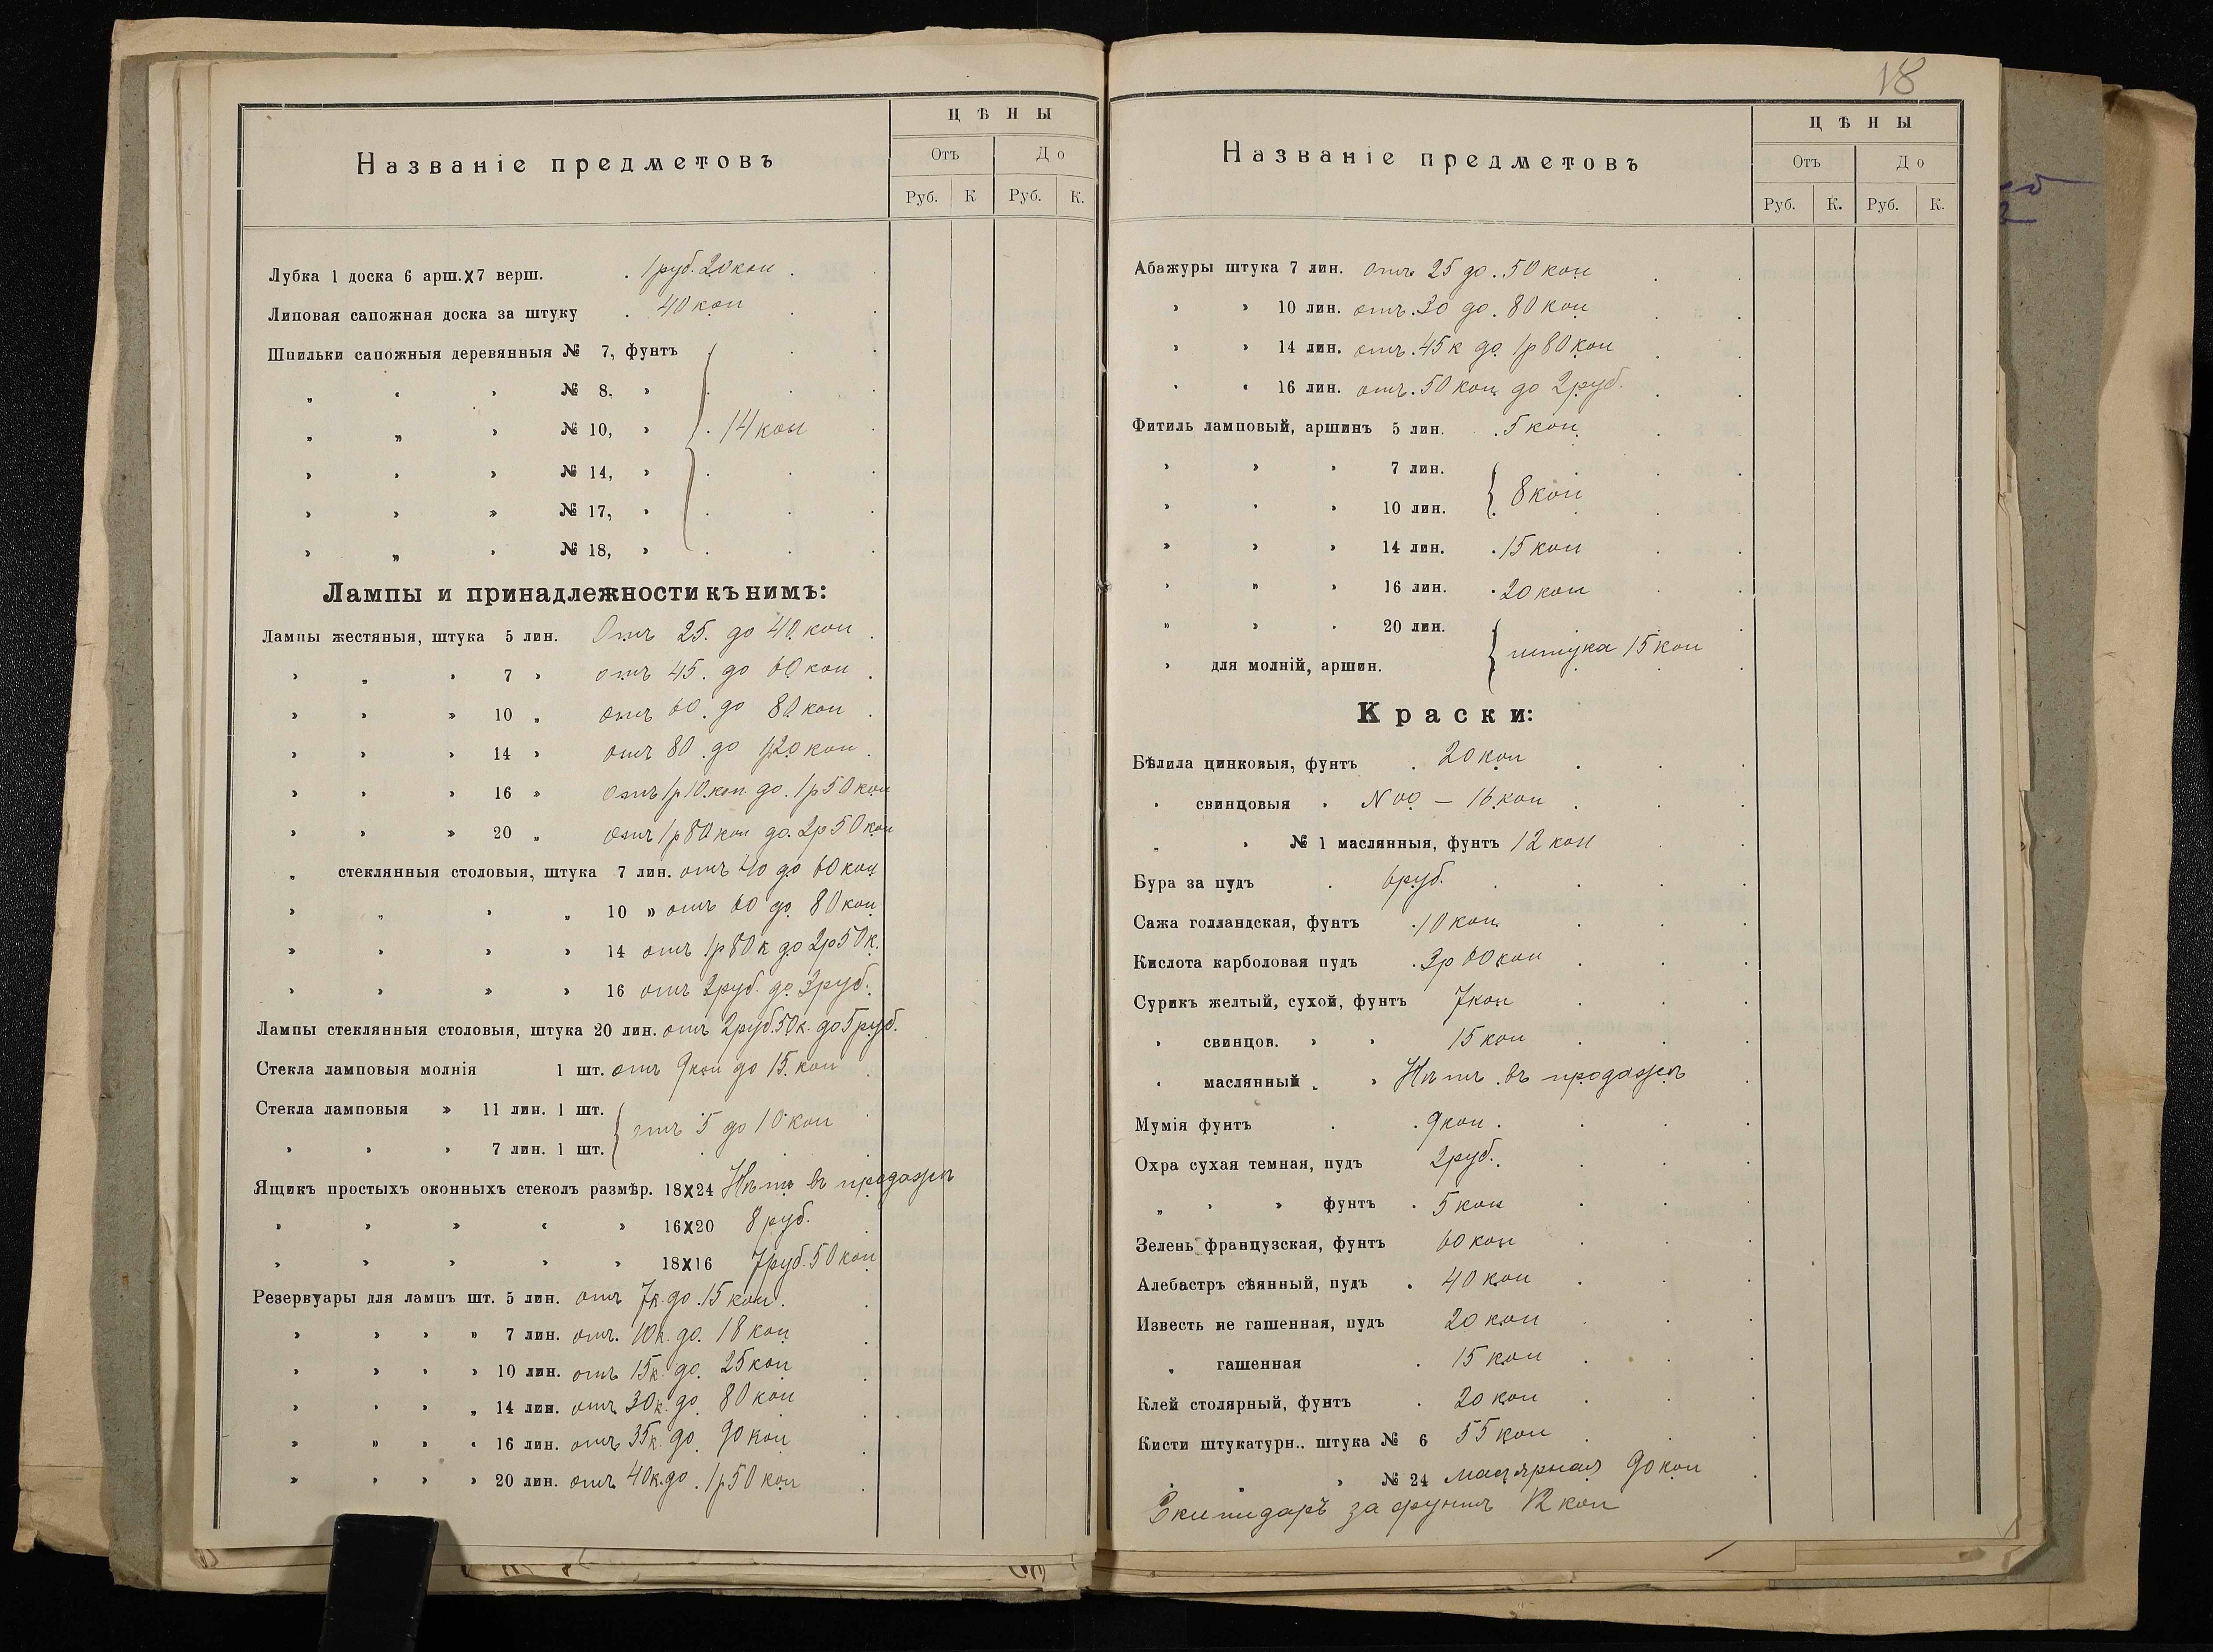 Названіе предметовъ
ЦѢНЫ
Отъ До
Руб. К Руб. К.
Лубка 1 доска 6 арш.х7 верш. 1 руб. 20 коп
Липовая сапожная доска за штуку 40 коп
Шпильки сапожныя деревянныя № 7, фунтъ
„ „ „ № 8, „
„ „ „ № 10, „ 14 коп
„ „ „ № 14, „
„ „ „ № 17, „
„ „ „ № 18, „
Лампы и принадлежности къ нимъ:
Лампы жестяныя, штука 5 лин. Отъ 25. до 40. коп
„ „ „ 7 „ отъ 45. до 60 коп
„ „ „ 10 „ отъ 60. до 80 коп
„ „ „ 14 „ отъ 80. до 1р20 коп
„ „ „ 16 „ отъ 1р10. коп до. 1р50 коп
„ „ „ 20 „ отъ 1р80 коп до. 2р50 коп
„ стеклянныя столовыя, штука 7 лин. отъ 40 до 60 коп
„ „ „ „ 10 „ отъ 60 до 80 коп
„ „ „ „ 14 отъ 1р80к до 2р50к.
„ „ „ „ 16 отъ 2руб. до 3руб.
Лампы стеклянныя столовыя, штука 20 лин. отъ 2руб.50к. до 5руб.
Стекла ламповыя молнія 1 шт. отъ 9коп до 15. коп
Стекла ламповыя „ 11 лин. 1 шт. отъ 5 до 10 коп
„ „ „ 7 лин. 1 шт.
Ящикъ простыхъ оконныхъ стеколъ размѣр. 18х24 Нѣтъ въ продажѣ
„ „ „ „ „ 16х20 8 руб.
„ „ „ „ „ 18х16 7руб. 50 коп
Резервуары для лампъ шт. 5 лин. отъ 7к. до. 15 коп.
„ „ „ „ 7 лин. отъ. 10к. до. 18 коп
„ „ „ „ 10 лин. отъ 15к. до. 25 коп
„ „ „ „ 14 лин. отъ 30к. до. 80 коп
„ „ „ „ 16 лин. отъ 35к. до. 90 коп
„ „ „ „ 20 лин. отъ 40к. до. 1р50 коп
18
Названіе предметовъ
ЦѢНЫ
Отъ До
Руб. К. Руб. К.
Абажуры штука 7 лин. отъ 25 до. 50 коп
„ „ 10 лин. отъ. 30 до. 80 коп
„ „ 14 лин. отъ. 45к до. 1р80 коп
„ „ 16 лин. отъ. 50 коп. до 2руб.
Фитиль ламповый, аршинъ 5 лин. 5 коп
„ „ „ 7 лин. 8 коп
„ „ „ 10 лин.
„ „ „ 14 лин. 15 коп
„ „ „ 16 лин. 20 коп
„ „ „ 20 лин. штука 15 коп
„ для молній, аршин.
Краски:
Бѣлила цинковыя, фунтъ 20 коп
„ свинцовыя „ N 00 — 16 коп
„ „ № 1 маслянныя, фунтъ 12 коп
Бура за пудъ 6руб.
Сажа голландская, фунтъ 10 коп
Кислота карболовая пудъ 3р 60 коп
Сурикъ желтый, сухой, фунтъ 7 коп
„ свинцов. „ „ 15 коп
„ маслянный „ „ Нѣтъ въ продажѣ
Мумія фунтъ 9 коп.
Охра сухая темная, пудъ 2руб.
„ „ „ фунтъ 5 коп
Зелень французская, фунтъ 60 коп
Алебастръ сѣянный, пудъ 40 коп
Известь не гашенная, пудъ 20 коп
„ гашенная 15 коп
Клей столярный, фунтъ 20 коп
Кисти штукатурн.. штука № 6 55 коп
„ „ „ № 24 малярная 90 коп
Скипидаръ за фунтъ 12 коп